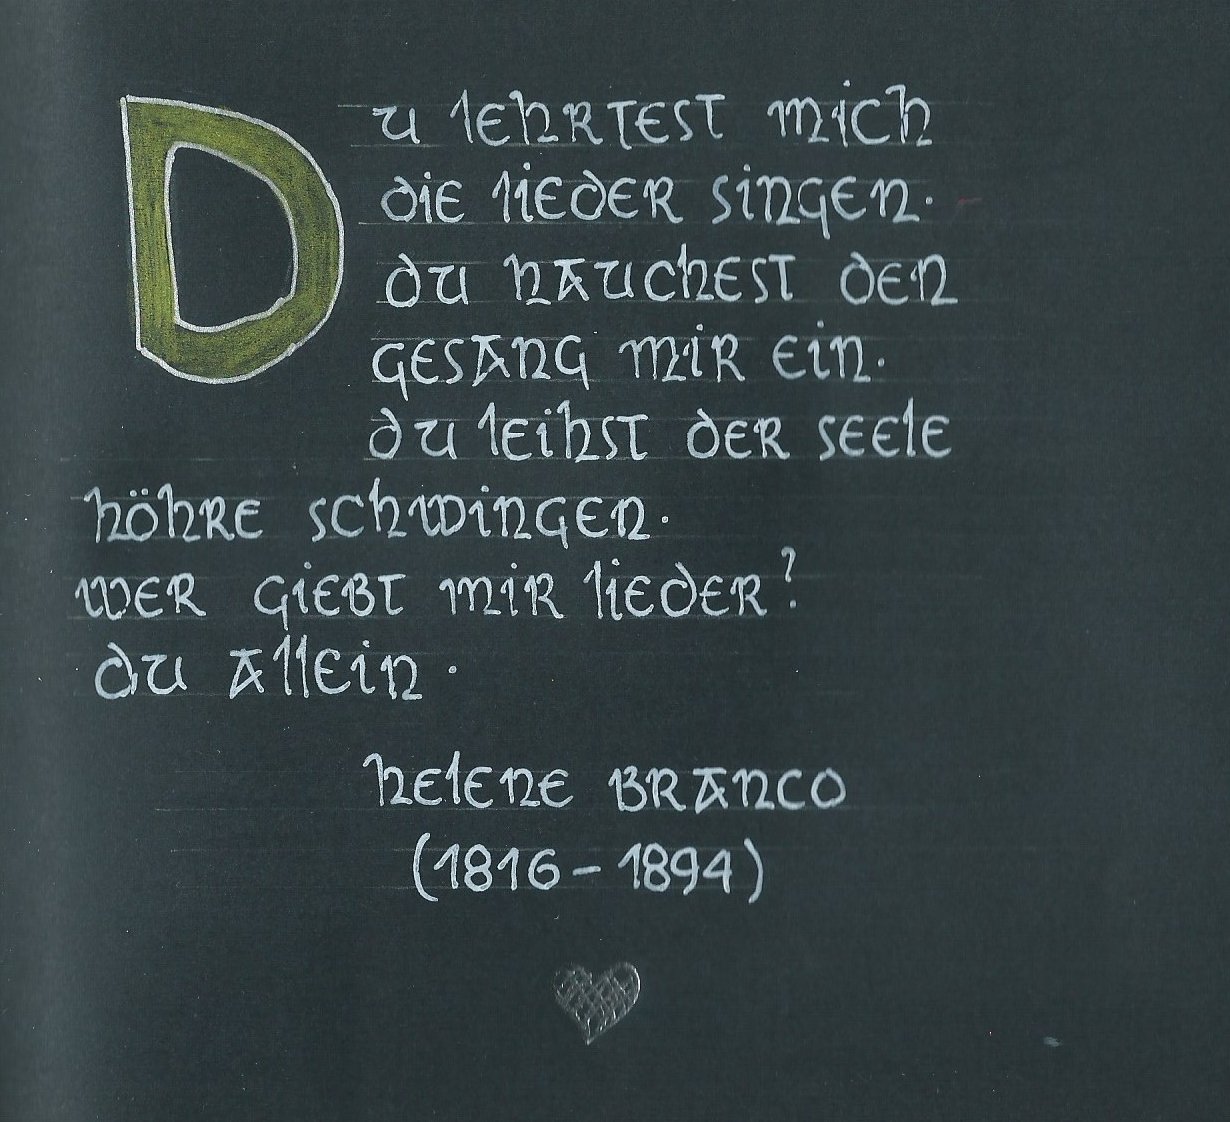 Du lehrtest mich
die lieder singen.
du hauchest den
gesang mir ein.
du leihst der seele
höhre schwingen.
wer giebt mir lieder?
du allein.
helene branco
(1816-1894)